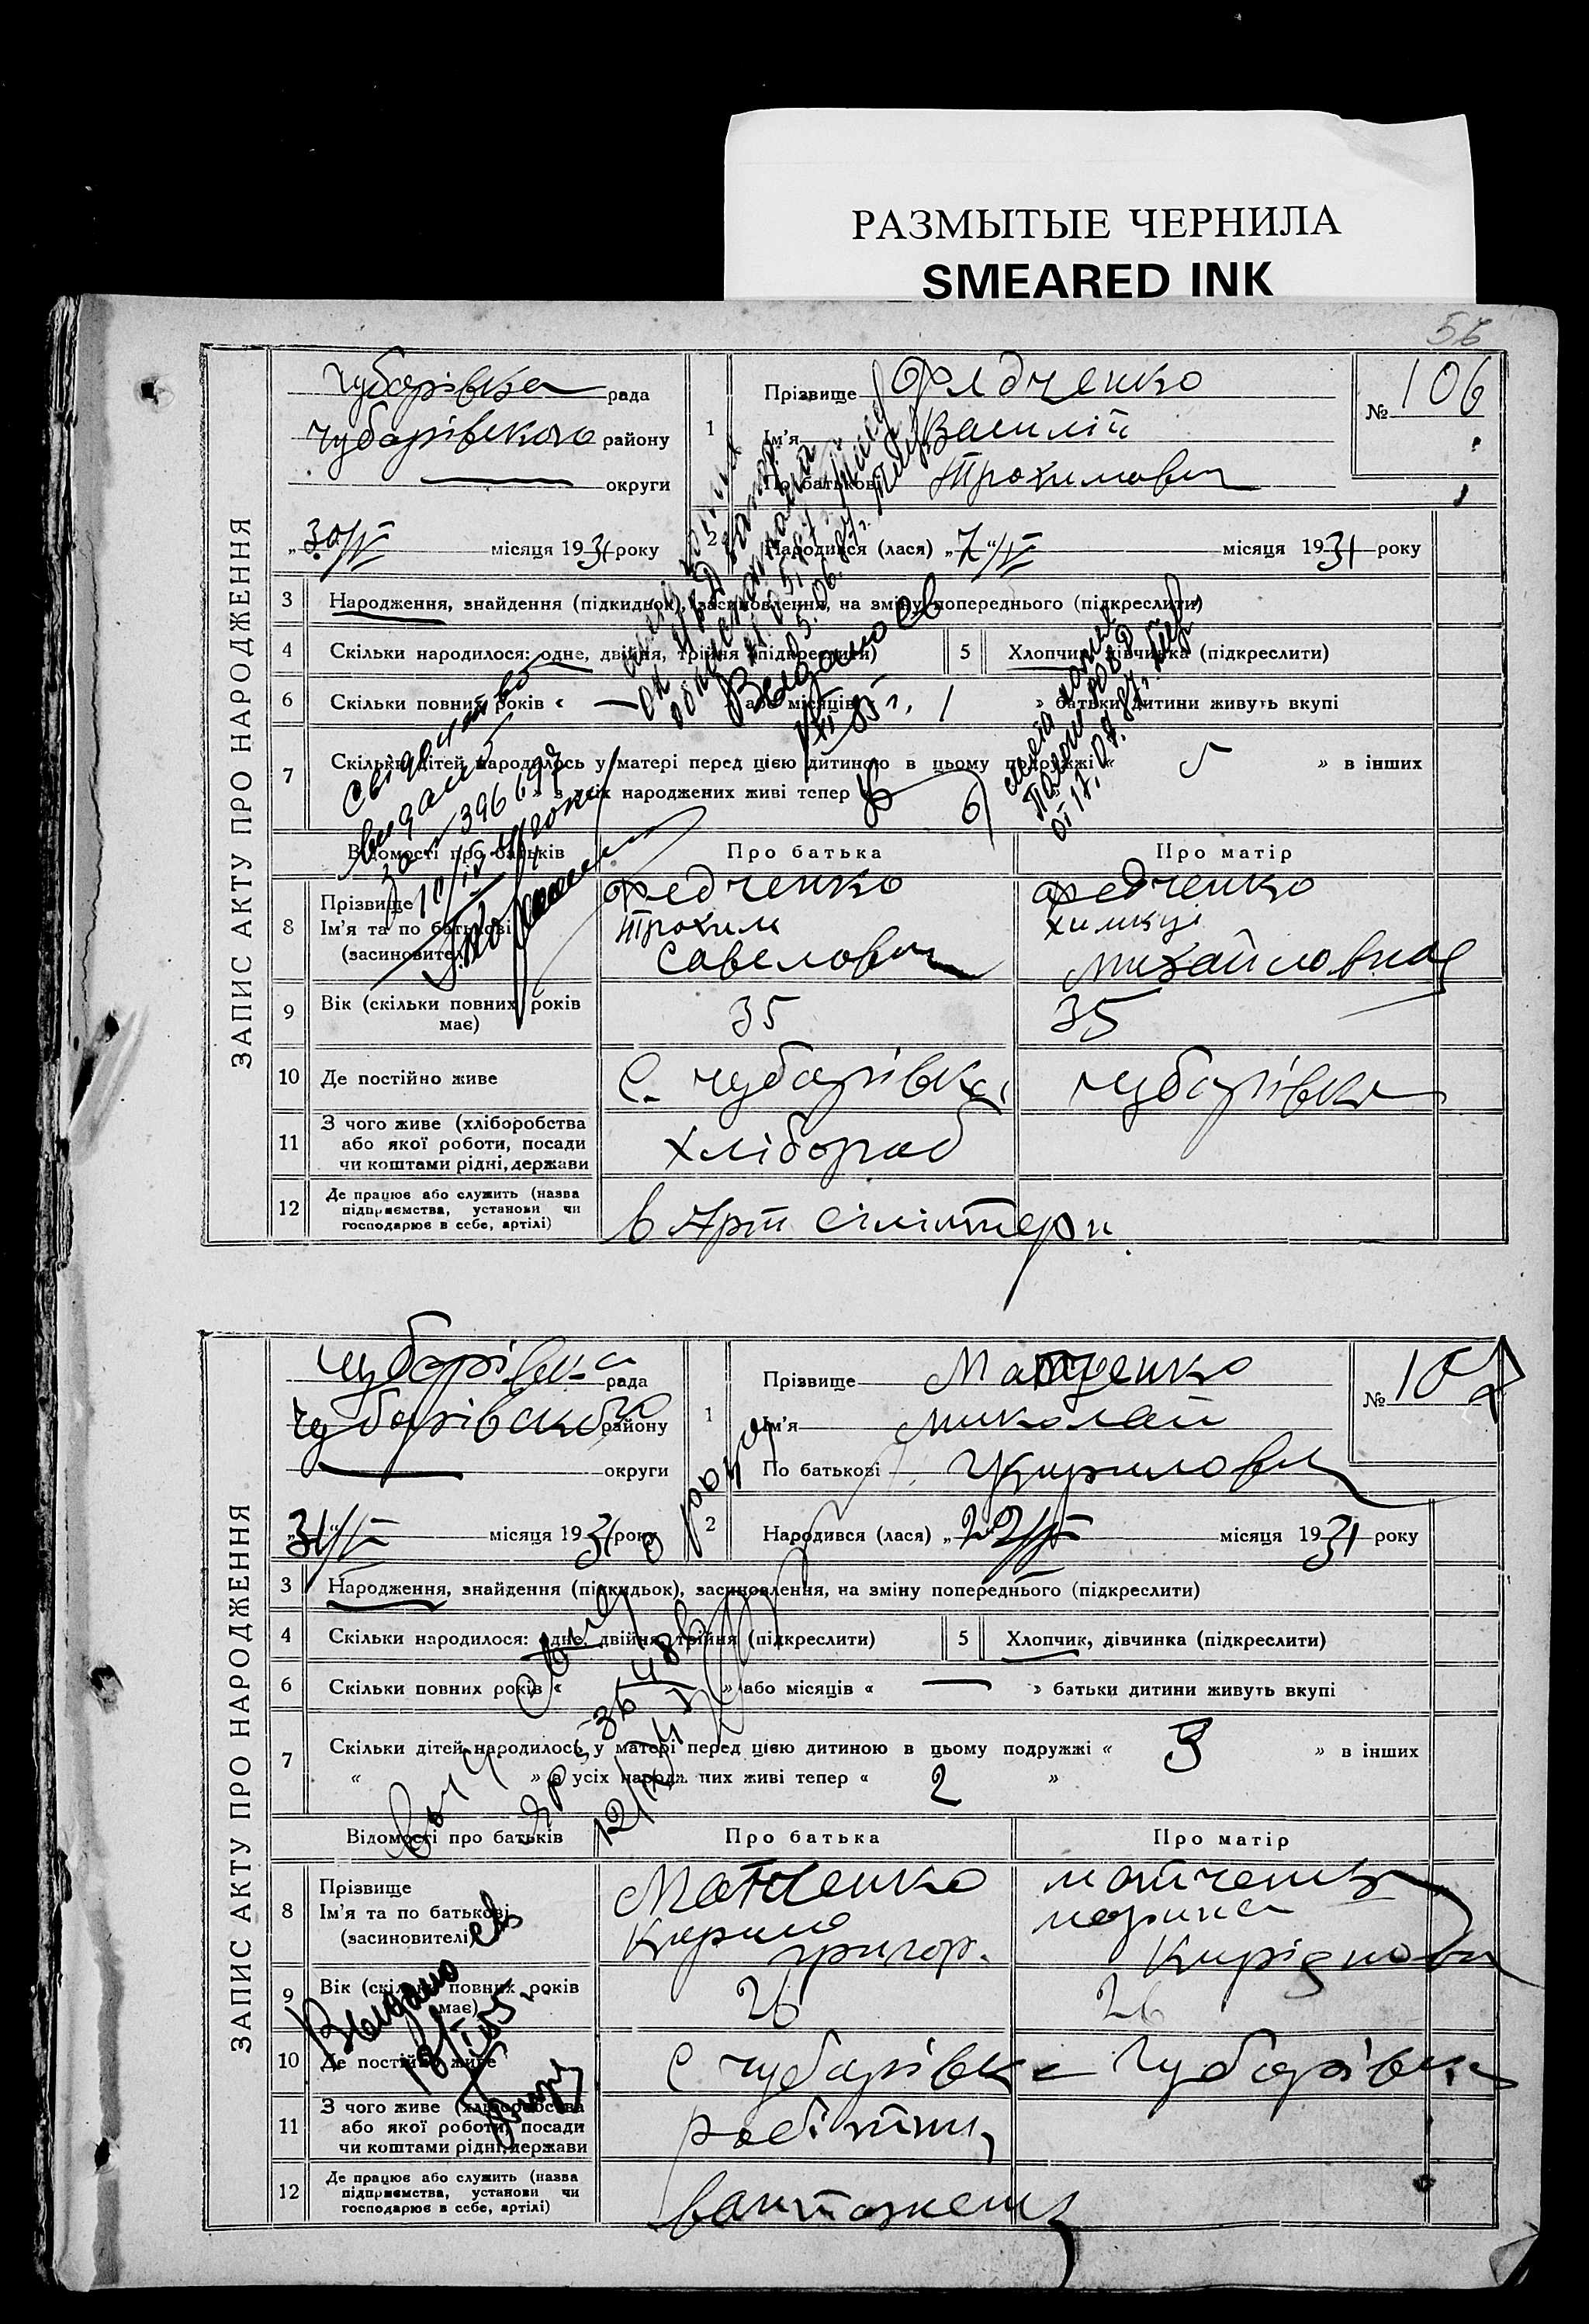 РАЗМЫТЫЕ ЧЕРНИЛА
SMEARED INK
ЗАПИС АКТУ ПРО НАРОДЖЕННЯ
Чубарівка рада
Чубарівського району
округи
1
Прізвище Федченко
Ім'я Василій
По батькові Трохимович
№ 106
„30/V місяця 1931 року
2
Народився (лася) „7“/V місяця 1931 року
3 Народження, знайдення (підкидьок), засиновлення, на зміну попереднього (підкреслити)
4 Скільки народилося: одне, двійня, трійня (підкреслити)
5 Хлопчик, дівчинка (підкреслити)
6 Скільки повних років « — » або місяців « » батьки дитини живуть вкупі
7 Скільки дітей народилось у матері перед цією дитиною в цьому подружжі « 5 » в інших
» з усіх народжених живі тепер «
Свідоцтво
видано
Выдано св
Відомості про батьків
Про батька
Про матір
8
Прізвище
Ім'я та по батькові
(засиновителі)
Федченко
Трохим
Савелович
Федченко
Михайловна
9 Вік (скільки повних років має)
35
35
10 Де постійно живе
С. Чубарівка
Чубарівка
11
З чого живе (хліборобства
або якої роботи, посади
чи коштами рідні, держави
хлібороб
12
Де працює або служить (назва
підприємства, установи чи
господарює в себе, артілі)
в Арт
ЗАПИС АКТУ ПРО НАРОДЖЕННЯ
Чубарівка рада
Чубарівського району
округи
1
Прізвище Матченко
Ім'я Миколай
По батькові Кирилович
№ 107
„31“/V місяця 1931 року
2
Народився (лася) „22/V місяця 1931 року
3 Народження, знайдення (підкидьок), засиновлення, на зміну попереднього (підкреслити)
4 Скільки народилося: одне, двійня, трійня (підкреслити)
5 Хлопчик, дівчинка (підкреслити)
6 Скільки повних років « » або місяців « — » батьки дитини живуть вкупі
7 Скільки дітей народилось у матері перед цією дитиною в цьому подружжі « 3 » в інших
« » з усіх народжених живі тепер « 2 »
Відомості про батьків
Про батька
Про матір
8
Прізвище
Ім'я та по батькові
(засиновителі)
Матченко
Кирило
Григор.
Матченко
Марина
Выдано св
9 Вік (скільки повних років має)
26
26
10 Де постійно живе
С Чубарівка
Чубарівка
11
З чого живе (хліборобства
або якої роботи, посади
чи коштами рідні, держави
робітник
12
Де працює або служить (назва
підприємства, установи чи
господарює в себе, артілі)
вантажник